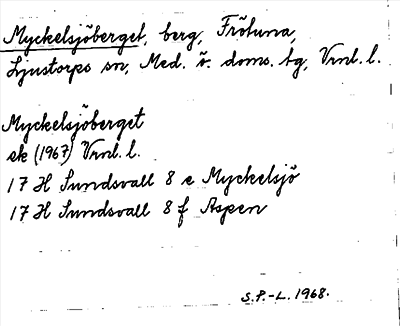 Myckelsjöberget, berg, Frötuna,
Ljustorps sn, Med. ö. doms. tg, Vrnl. l.
Myckelsjöberget
ek (1967) Vrnl. l.
17 H Sundsvall 8 e Myckelsjö
17 H Sundsvall 8 f Aspen
S.P.-L. 1968.